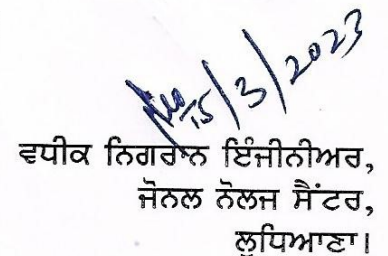 15/3/2023
ਵਧੀਕ ਨਿਗਰਾਨ ਇੰਜੀਨੀਅਰ,
ਜੋਨਲ ਨੋਲਜ ਸੈਂਟਰ,
ਲੁਧਿਆਣਾ।